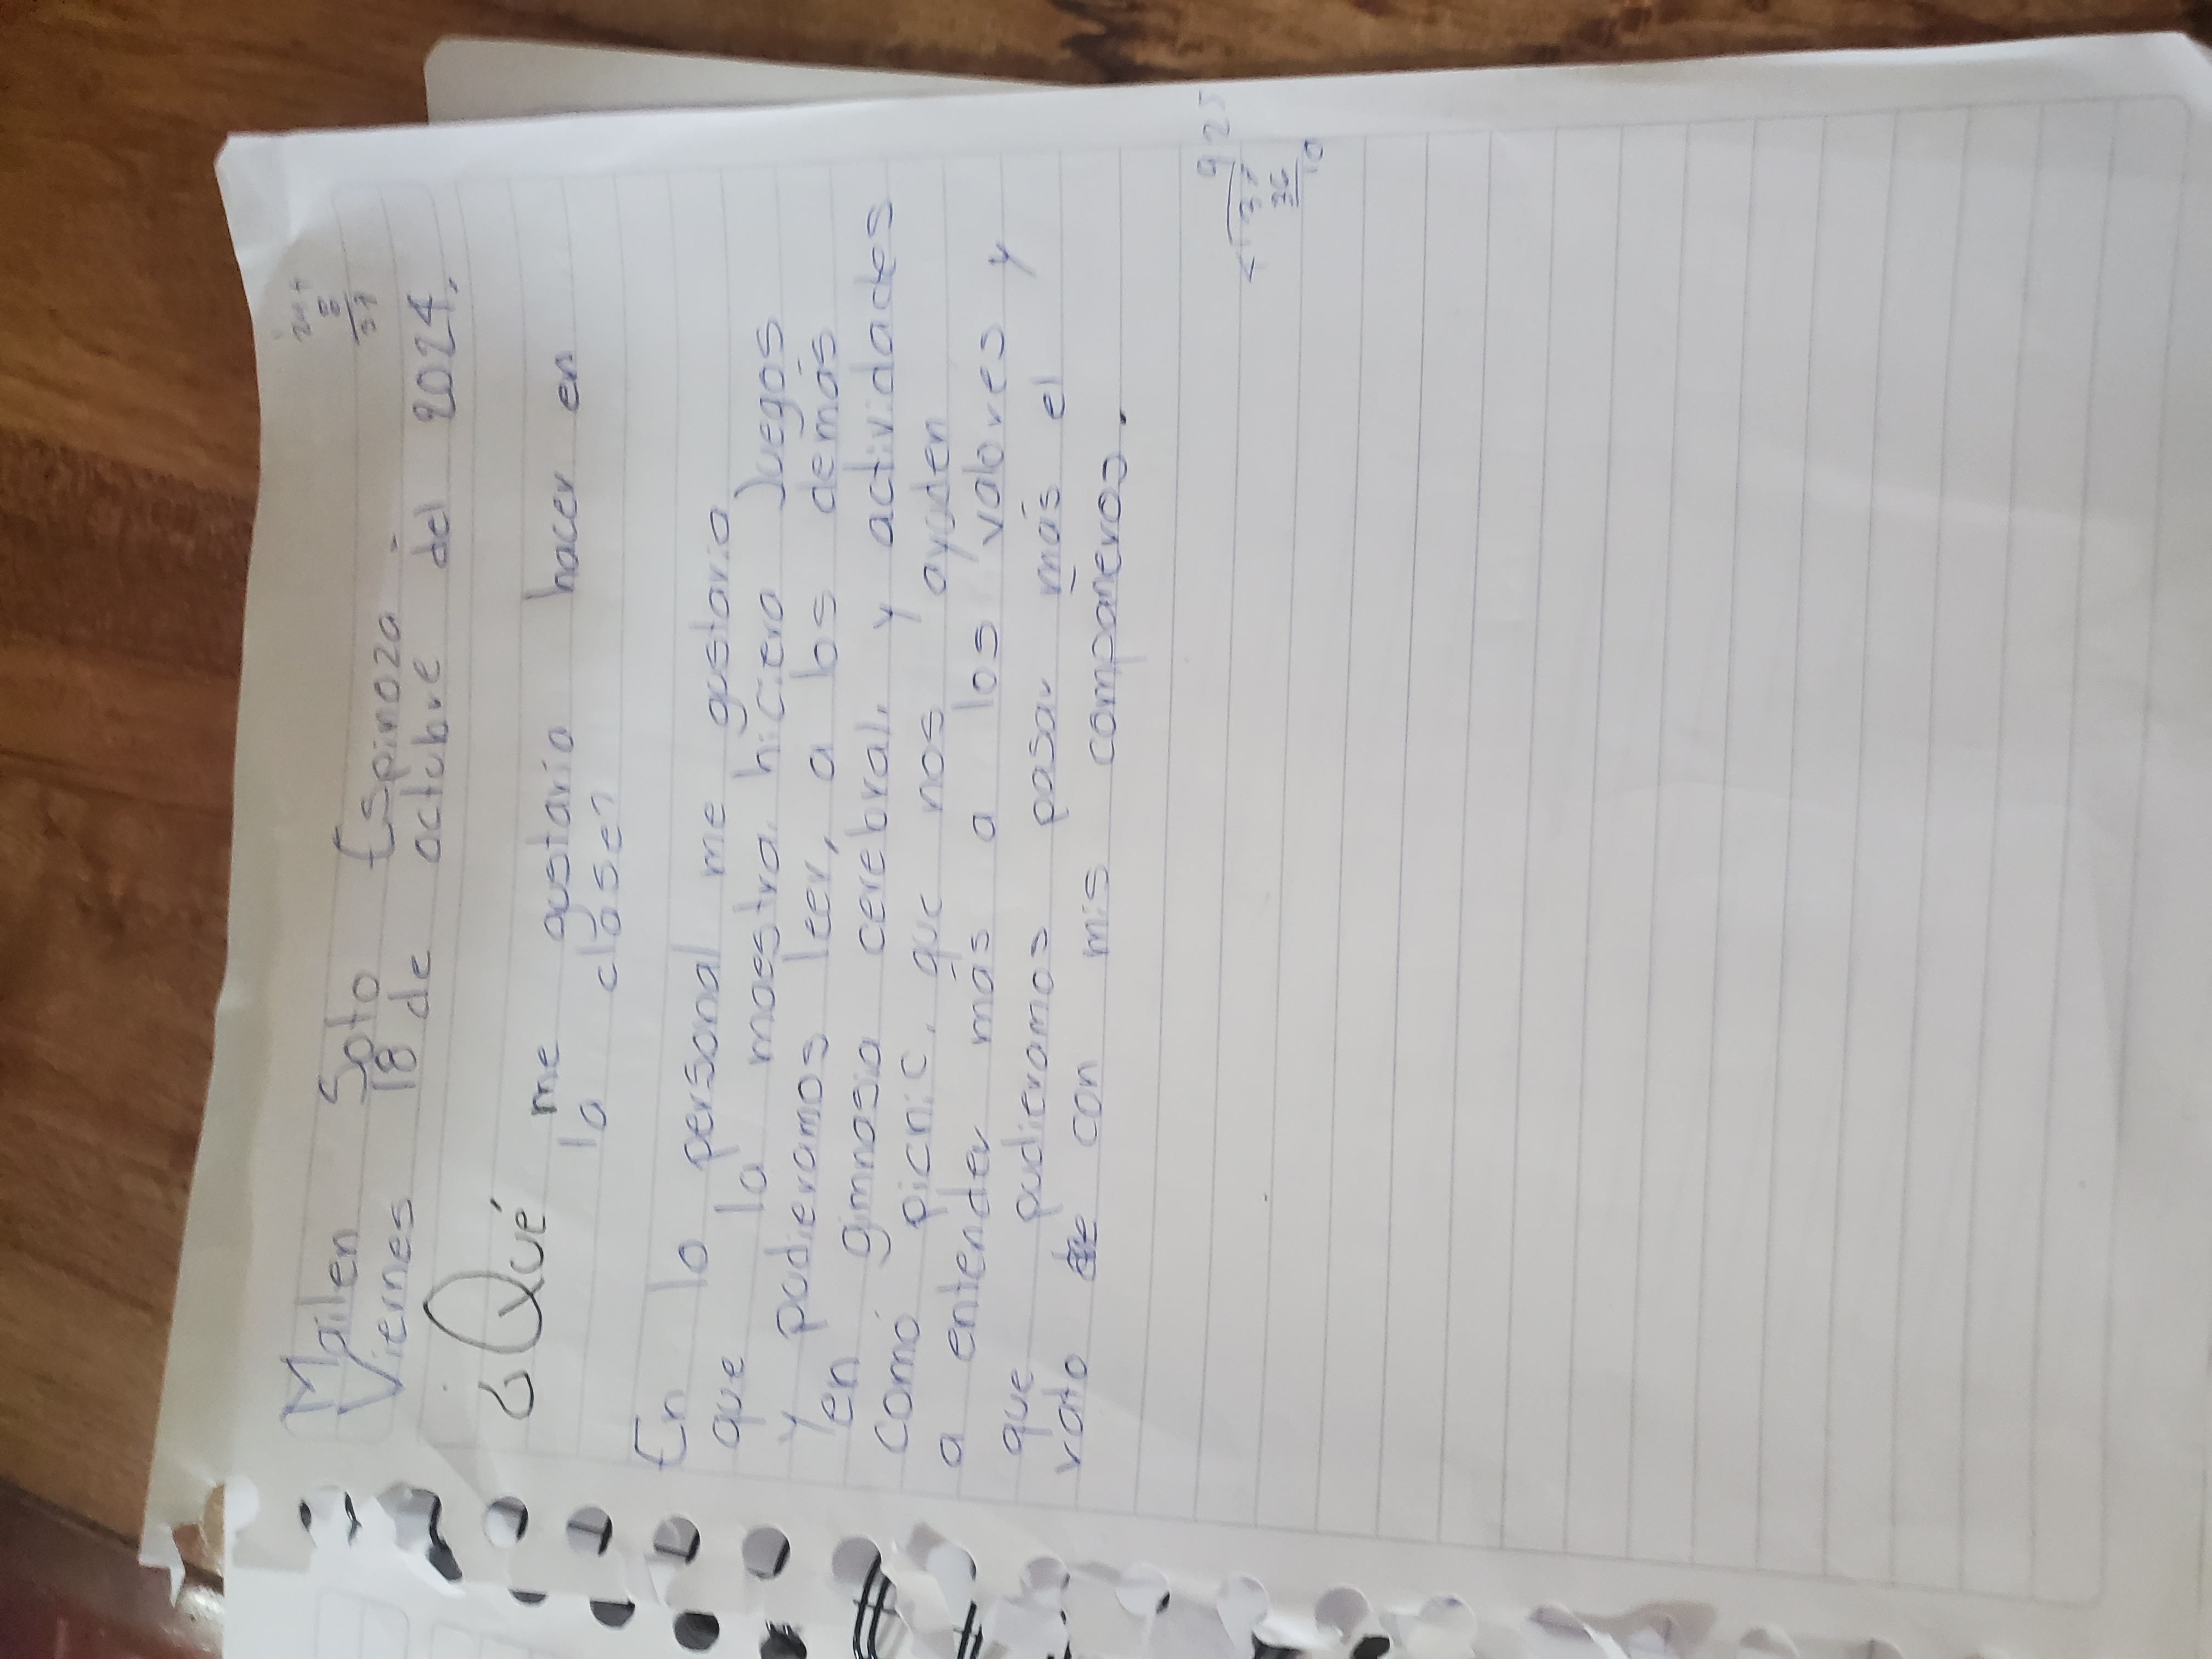 Mailen Soto Espinoza
Viernes 18 de octubre del 2024.
¿Qué me gustaria hacer en
la clase?
En lo personal me gustaria
que la maestra hiciera Juegos
y pudieramos leer, a los demás
en gimnasia cerebral, y actividades
como picnic, que nos ayuden
a entender más a los valores y
que pudieramos pasar más el
rato con mis companeros.
925
37
36
10